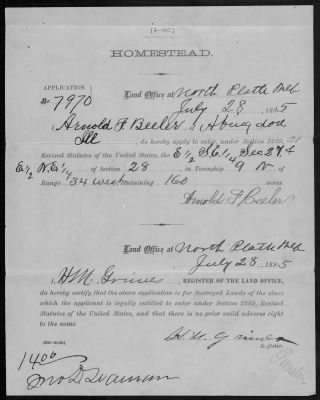 [4—007.]
HOMESTEAD.
APPLICATION
No. 7970
Land Office at North Platte Neb
July 28 1885
I, Arnold F Beeler, of Abingdon
Ill, do hereby apply to enter under Section 2289,
Revised Statutes of the United States, the E 1/2 S.E. 1/4 Sec 29 &
E. 1/2 N.E. 1/4 of Section 28 in Township 9 N of
Range 34 west containing 160 acres.
Arnold F Beeler
Land Office at North Platte Neb
July 28, 1885
I, H.M. Grimes, REGISTER OF THE LAND OFFICE,
do hereby certify that the above application is for Surveyed Lands of the class
which the applicant is legally entitled to enter under Section 2289, Revised
Statutes of the United States, and that there is no prior valid adverse right
to the same.
H. M. Grimes
Register.
1400